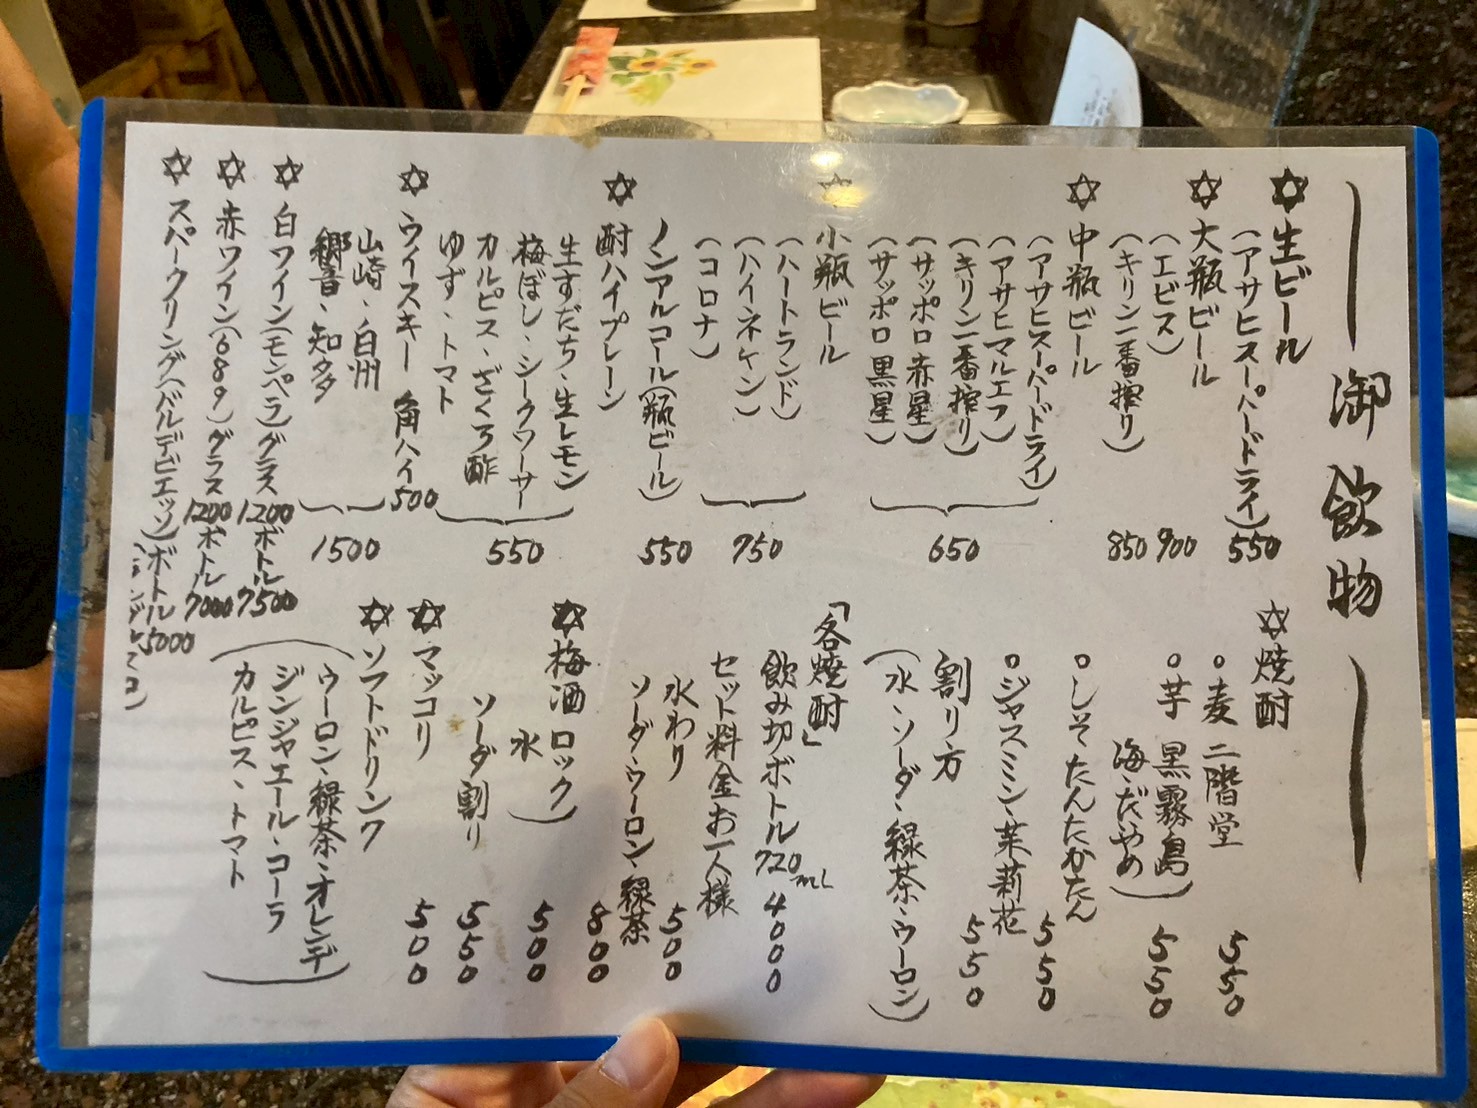 御飲物
✡生ビール
(アサヒスーパードライ) 550
✡大瓶ビール
(エビス) 900
(キリン一番搾り) 850
✡中瓶ビール
(アサヒスーパードライ)
(アサヒマルエフ)
(キリン一番搾り)
(サッポロ赤星)
(サッポロ黒星)
650
✡小瓶ビール
(ハートランド)
(ハイネケン)
(コロナ)
750
ノンアルコール(瓶ビール) 550
✡酎ハイプレーン
生すだち、生レモン
梅ぼし、シークワーサー
カルピス、ざくろ酢
ゆず、トマト
550
✡ウイスキー 角ハイ 500
山崎、白州
響、知多
1500
✡白ワイン(モンペラ)グラス1200 ボトル7500
✡赤ワイン(689)グラス1200 ボトル7000
✡スパークリング(バルデビエッソ)ボトル5000
✡焼酎
○麦 二階堂 550
○芋 黒霧島
海、だやめ)
550
○しそ たんたかたん 550
○ジャスミン、茉莉花 550
割り方
(水、ソーダ、緑茶、ウーロン)
「各焼酎」
飲み切ボトル720mL 4000
セット料金お一人様
水わり 500
ソーダ、ウーロン、緑茶 800
✡梅酒 ロック
水)
500
ソーダ割り 550
✡マッコリ 500
✡ソフトドリンク
(ウーロン、緑茶、オレンヂ
ジンジャエール、コーラ
カルピス、トマト)